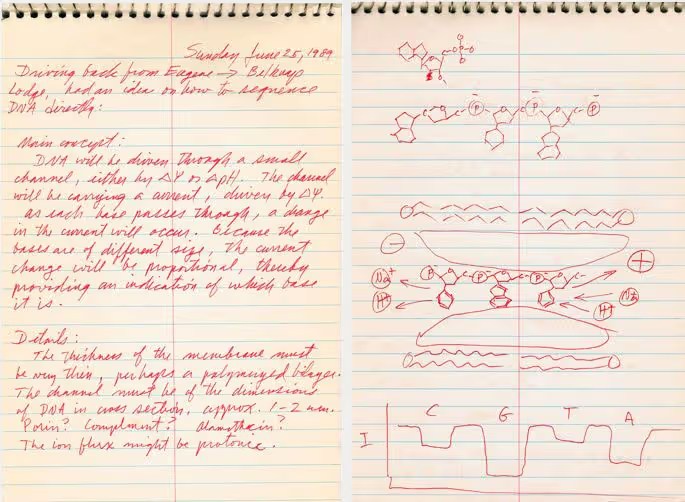 Sunday June 25, 1989
Driving back from Eugene → Belknap
Lodge, had an idea on how to sequence
DNA directly:
Main concept:
DNA will be driven through a small
channel, either by ΔΨ or ΔpH. The channel
will be carrying a current, driven by ΔΨ.
As each base passes through, a change
in the current will occur. Because the
bases are of different size, the current
change will be proportional, thereby
providing an indication of which base
it is.
Details:
The thickness of the membrane must
be very thin, perhaps a polymerized bilayer.
The channel must be of the dimensions
of DNA in cross section, approx. 1-2 nm.
Porin? Complement? Alamethicin?
The ion flux might be protonic.
O
O P O
O
C P C P C P
− +
Na+ P P P
H+ H+ Na
C G T A
I